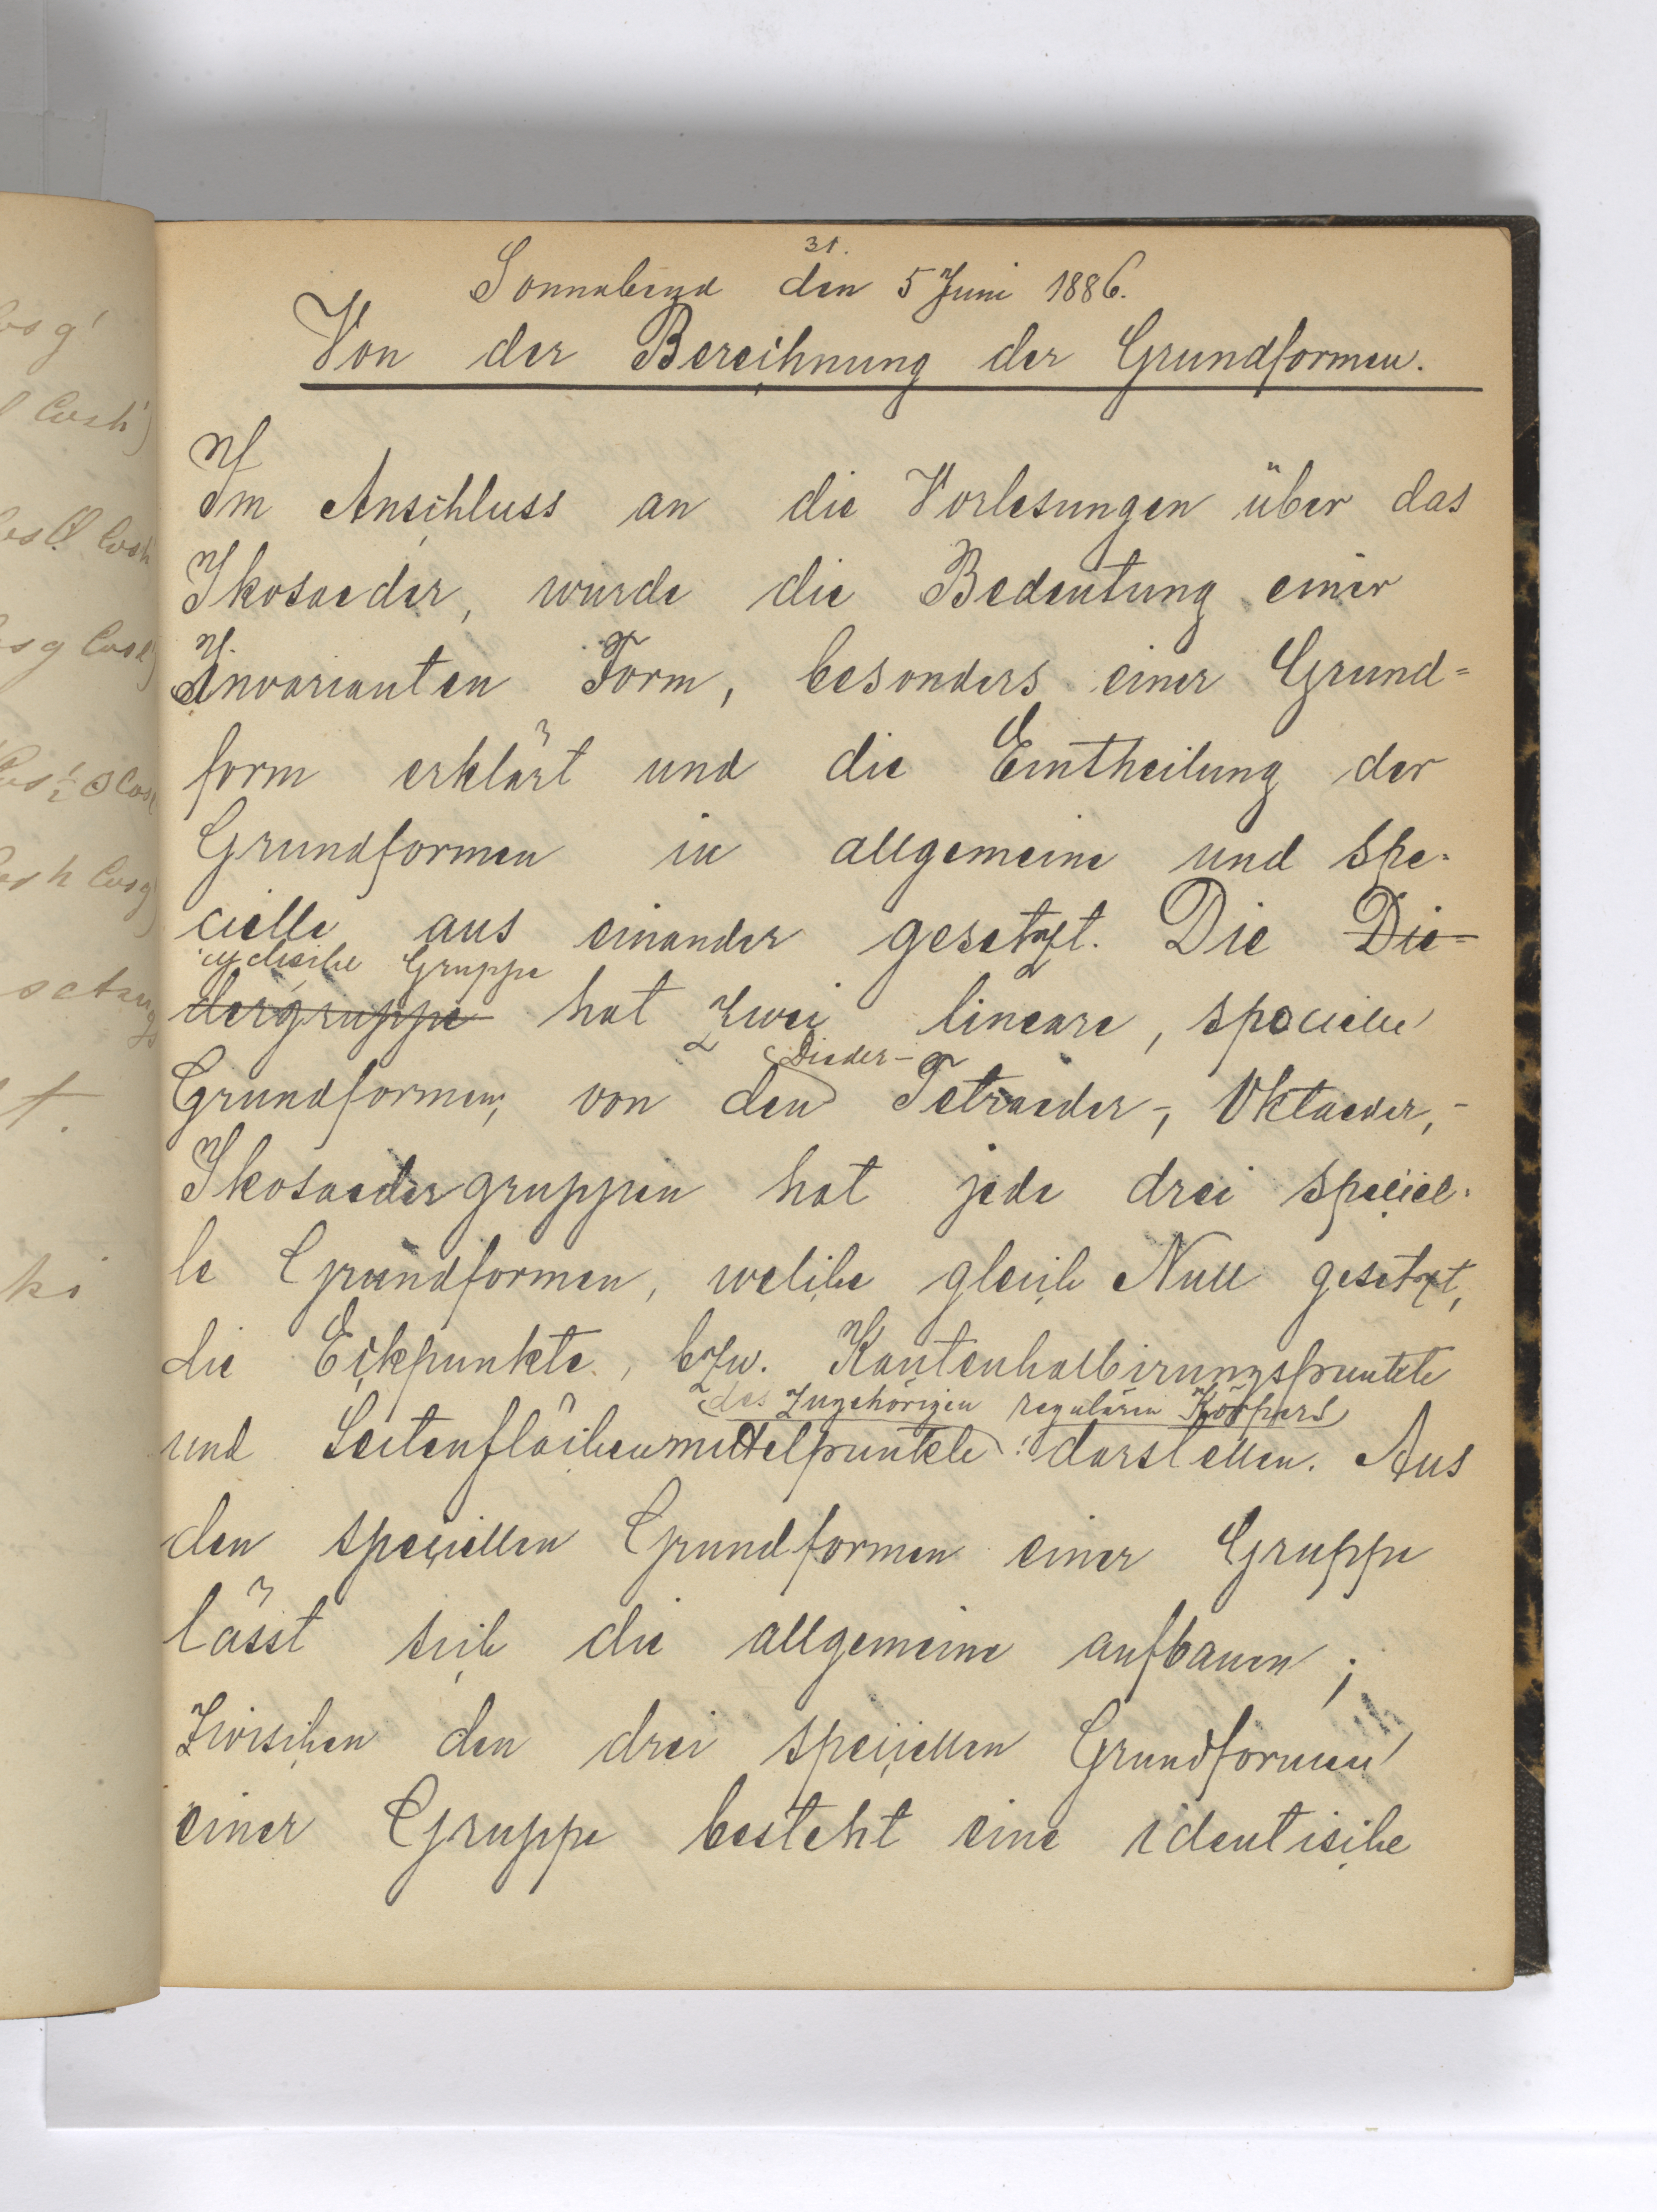 os g'
l Cosh')
cos l Cosh
s g Cosl)
31.
Sonnabend den 5 Juni 1886.
Von der Berechnung der Grundformen.
Im Anschluss an die Vorlesungen über das
Ikosaeder, wurde die Bedeutung einer
Invarianten Form, besonders einer Grund=
form erklärt und die Eintheilung der
Grundformen in allgemeine und spe-
cielle aus einander gesetzt. Die Die-
cyclische Gruppe
dergruppe hat zwei lineare, specielle
Dieder-
Grundformen, von den Tetraeder-, Oktaeder,-
Ikosaedergruppen hat jede drei speciel-
le Grundformen, welche gleich Null gesetzt,
die Eckpunkte, bzw. Kantenhalbirungspunkte
des zugehörigen regulären Körpers
und Seitenflächenmittelpunkte darstellen. Aus
den speciellen Grundformen einer Gruppe
lässt sich die allgemeine aufbauen;
Zwischen den drei speciellen Grundformen
einer Gruppe besteht eine identische